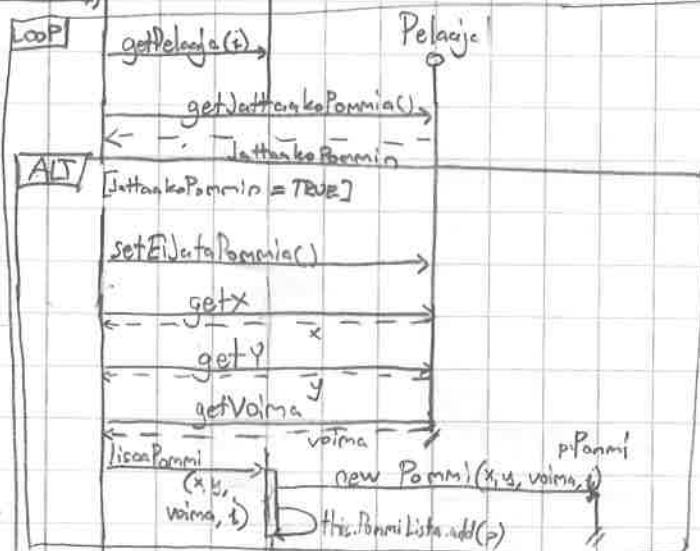 LOOP
Pelaaja
getPelaaja(i)
getJattaakoPommia()
JattaakoPommin
ALT
[JattaakoPommin = TRUE]
setEiJataPommia()
getX
x
getY
y
getVoima
voima
p:Pommi
lisaaPommi
(x, y,
voima, i)
new Pommi(x, y, voima, i)
this.PommiLista.add(p)